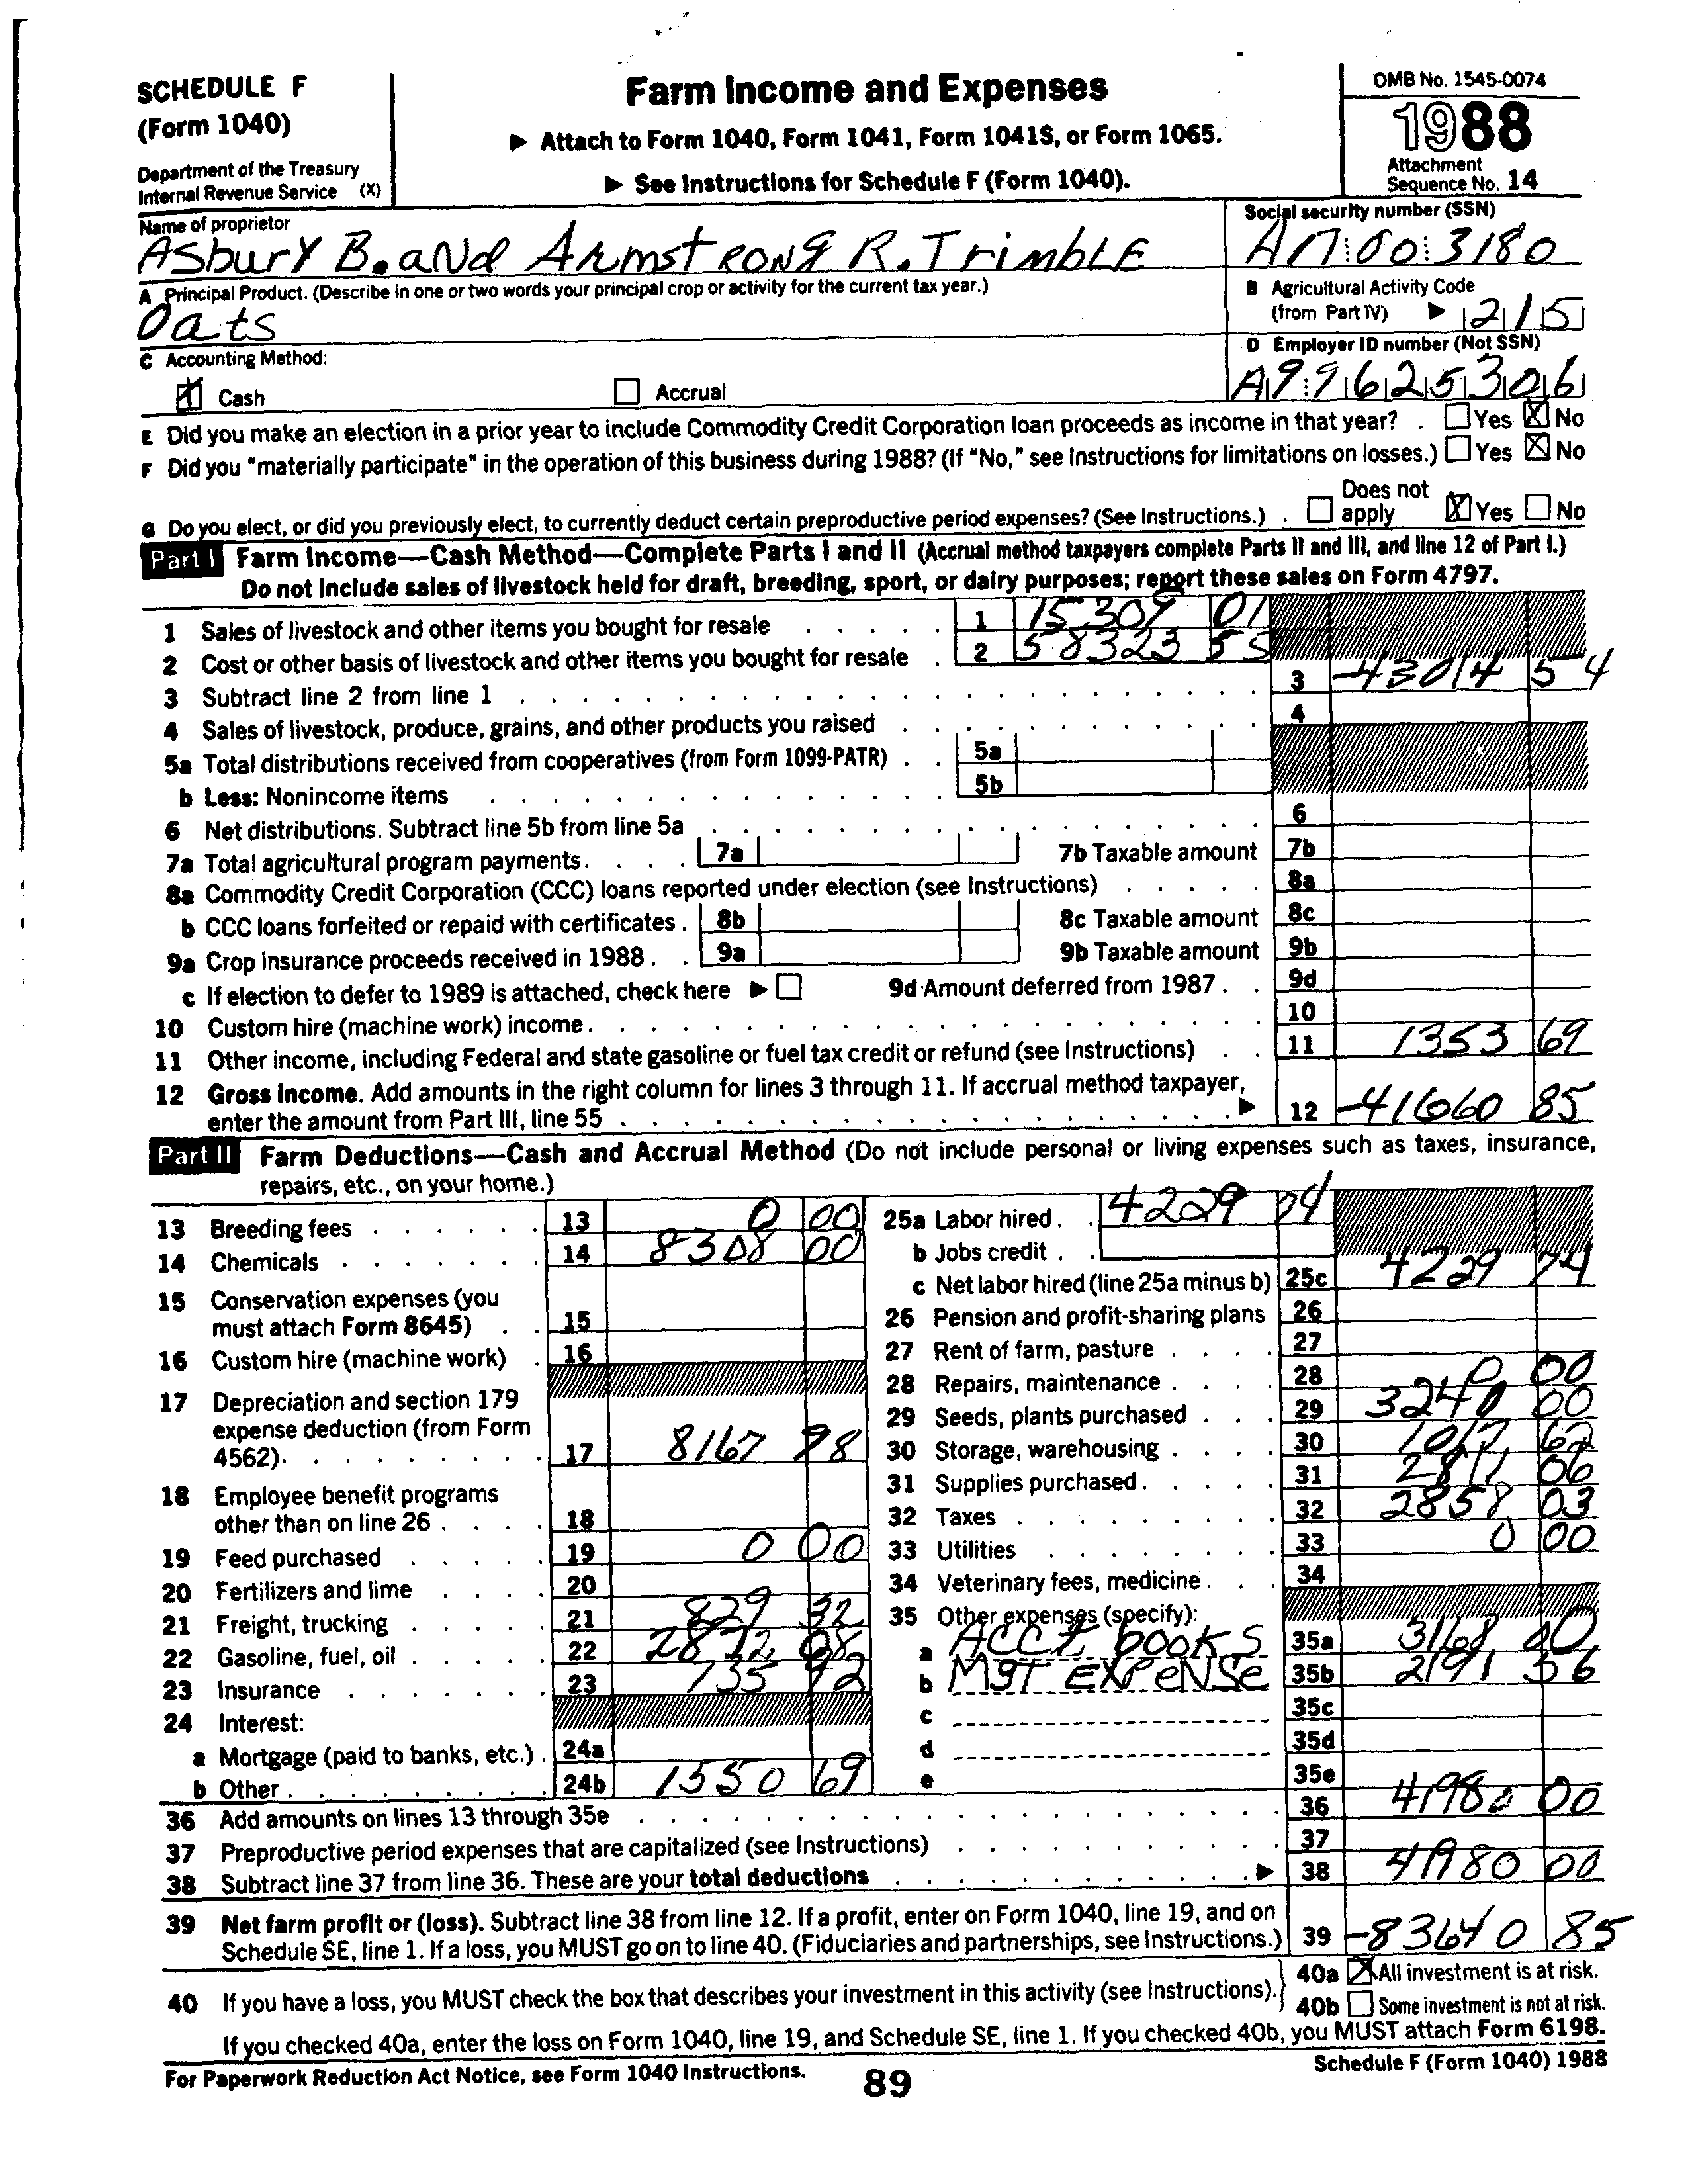 SCHEDULE F
(Form 1040)
Department of the Treasury
Internal Revenue Service (X)
Farm Income and Expenses
▶ Attach to Form 1040, Form 1041, Form 1041S, or Form 1065.
▶ See Instructions for Schedule F (Form 1040).
OMB No. 1545-0074
1988
Attachment
Sequence No. 14
Name of proprietor
Asbury B. and Armstrong R. Trimble
Social security number (SSN)
A17:00:3180
A Principal Product. (Describe in one or two words your principal crop or activity for the current tax year.)
Oats
B Agricultural Activity Code
(from Part IV) ▶ 215
C Accounting Method:
Cash Accrual
D Employer ID number (Not SSN)
A99625306
E Did you make an election in a prior year to include Commodity Credit Corporation loan proceeds as income in that year? . Yes No
F Did you "materially participate" in the operation of this business during 1988? (If "No," see Instructions for limitations on losses.) Yes No
G Do you elect, or did you previously elect, to currently deduct certain preproductive period expenses? (See Instructions.) . Does not apply Yes No
Part I Farm Income—Cash Method—Complete Parts I and II (Accrual method taxpayers complete Parts II and III, and line 12 of Part I.)
Do not include sales of livestock held for draft, breeding, sport, or dairy purposes; report these sales on Form 4797.
1 Sales of livestock and other items you bought for resale 1 15309 01
2 Cost or other basis of livestock and other items you bought for resale 2 58323 55
3 Subtract line 2 from line 1 3 -43014 54
4 Sales of livestock, produce, grains, and other products you raised 4
5a Total distributions received from cooperatives (from Form 1099-PATR) 5a
b Less: Nonincome items 5b
6 Net distributions. Subtract line 5b from line 5a 6
7a Total agricultural program payments. 7a 7b Taxable amount 7b
8a Commodity Credit Corporation (CCC) loans reported under election (see Instructions) 8a
b CCC loans forfeited or repaid with certificates . 8b 8c Taxable amount 8c
9a Crop insurance proceeds received in 1988 . 9a 9b Taxable amount 9b
c If election to defer to 1989 is attached, check here ▶ 9d Amount deferred from 1987 . 9d
10 Custom hire (machine work) income. 10
11 Other income, including Federal and state gasoline or fuel tax credit or refund (see Instructions) 11 1353 69
12 Gross income. Add amounts in the right column for lines 3 through 11. If accrual method taxpayer,
enter the amount from Part III, line 55 ▶ 12 -41660 85
Part II Farm Deductions—Cash and Accrual Method (Do not include personal or living expenses such as taxes, insurance,
repairs, etc., on your home.)
13 Breeding fees 13 0 00
14 Chemicals 14 8308 00
15 Conservation expenses (you
must attach Form 8645) 15
16 Custom hire (machine work) 16
17 Depreciation and section 179
expense deduction (from Form
4562). 17 8167 98
18 Employee benefit programs
other than on line 26 . 18
19 Feed purchased 19 0 00
20 Fertilizers and lime 20
21 Freight, trucking 21 829 32
22 Gasoline, fuel, oil 22
23 Insurance 23 735 92
24 Interest:
a Mortgage (paid to banks, etc.) . 24a
b Other . 24b 1550 69
25a Labor hired . 4229 74
b Jobs credit .
c Net labor hired (line 25a minus b) 25c 4229 74
26 Pension and profit-sharing plans 26
27 Rent of farm, pasture 27
28 Repairs, maintenance 28 0 00
29 Seeds, plants purchased 29 3240 00
30 Storage, warehousing 30 1017 62
31 Supplies purchased. 31 2811 06
32 Taxes 32 2858 03
33 Utilities 33 0 00
34 Veterinary fees, medicine . 34
35 Other expenses (specify):
a Acct books 35a 3168 00
b Mgt Expense 35b 2191 36
c 35c
d 35d
e 35e
36 Add amounts on lines 13 through 35e 36 41980 00
37 Preproductive period expenses that are capitalized (see Instructions) 37
38 Subtract line 37 from line 36. These are your total deductions ▶ 38 41980 00
39 Net farm profit or (loss). Subtract line 38 from line 12. If a profit, enter on Form 1040, line 19, and on
Schedule SE, line 1. If a loss, you MUST go on to line 40. (Fiduciaries and partnerships, see Instructions.) 39 -83640 85
40 If you have a loss, you MUST check the box that describes your investment in this activity (see Instructions). 40a All investment is at risk.
40b Some investment is not at risk.
If you checked 40a, enter the loss on Form 1040, line 19, and Schedule SE, line 1. If you checked 40b, you MUST attach Form 6198.
For Paperwork Reduction Act Notice, see Form 1040 Instructions.
89
Schedule F (Form 1040) 1988